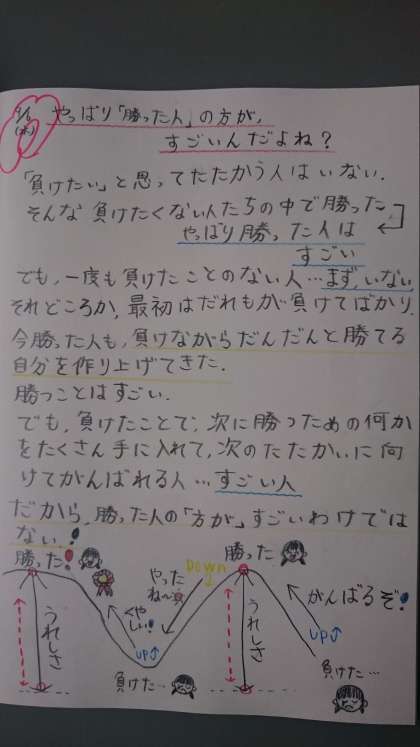 9/6
(水)
やっぱり「勝った人」の方が,
すごいんだよね?
「負けたい」と思ってたたかう人はいない.
そんな負けたくない人たちの中で勝った
やっぱり勝った人は
すごい
でも,一度も負けたことのない人…まず,いない.
それどころか,最初はだれもが負けてばかり.
今勝った人も,負けながらだんだんと勝てる
自分を作り上げてきた.
勝つことはすごい.
でも,負けたことで,次に勝つための何か
をたくさん手に入れて,次のたたかいに向
けてがんばれる人…すごい人
だから,勝った人の「方が」すごいわけでは
ない!
勝った!
うれしさ
くやしい!
UP↑
負けた…
やった
ね〜
DOWN
勝った
うれしさ
がんばるぞ!
UP↑
負けた…